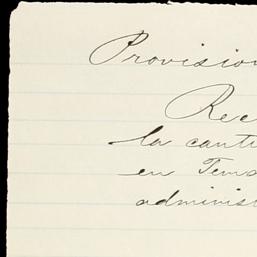 Provision
Rec
la canti
en Tem
administ